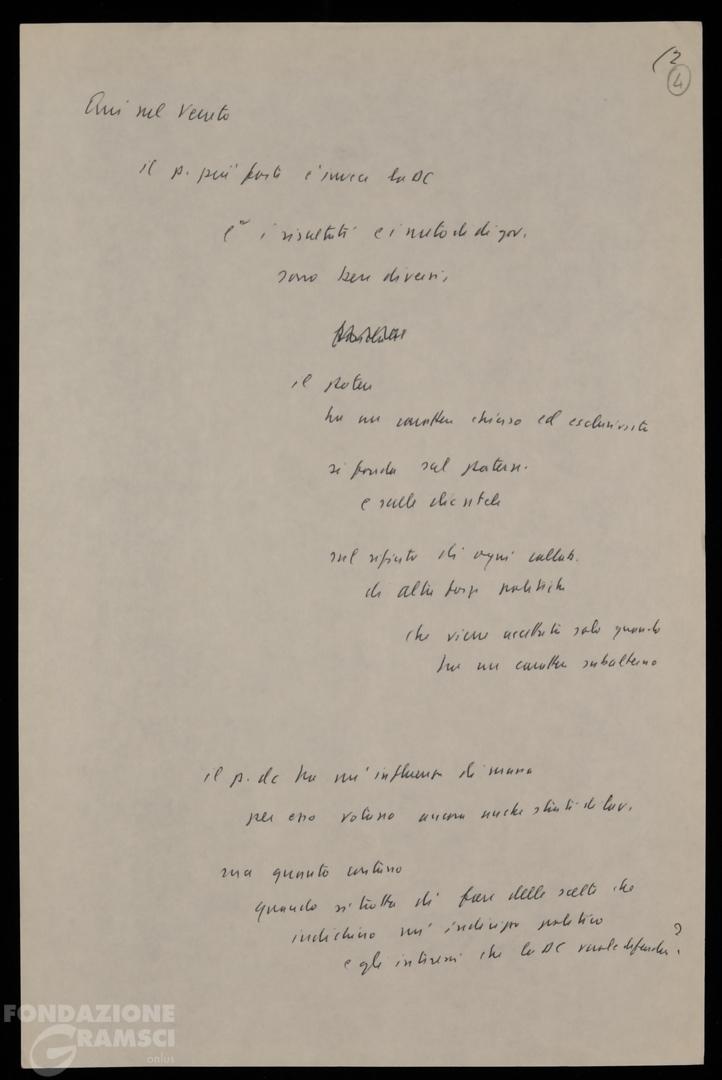 (3
4
Qui nel Veneto
il p. più forte è invece la DC
e i risultati e i metodi di gov.
sono ben diversi,
il potere
ha un carattere chiuso ed esclusivista
si fonda sul patern.
e sulle clientele
sul rifiuto di ogni collab.
di altre forze politiche
che viene accettata solo quando
ha un carattere subalterno
il p. dc ha un'influenza di massa
per esso votano ancora anche strati di lav.
ma quanto contano
quando si tratta di fare delle scelte che
indichino un indirizzo politico
e gli interessi che la DC vuole difendere?
FONDAZIONE
GRAMSCI
onlus